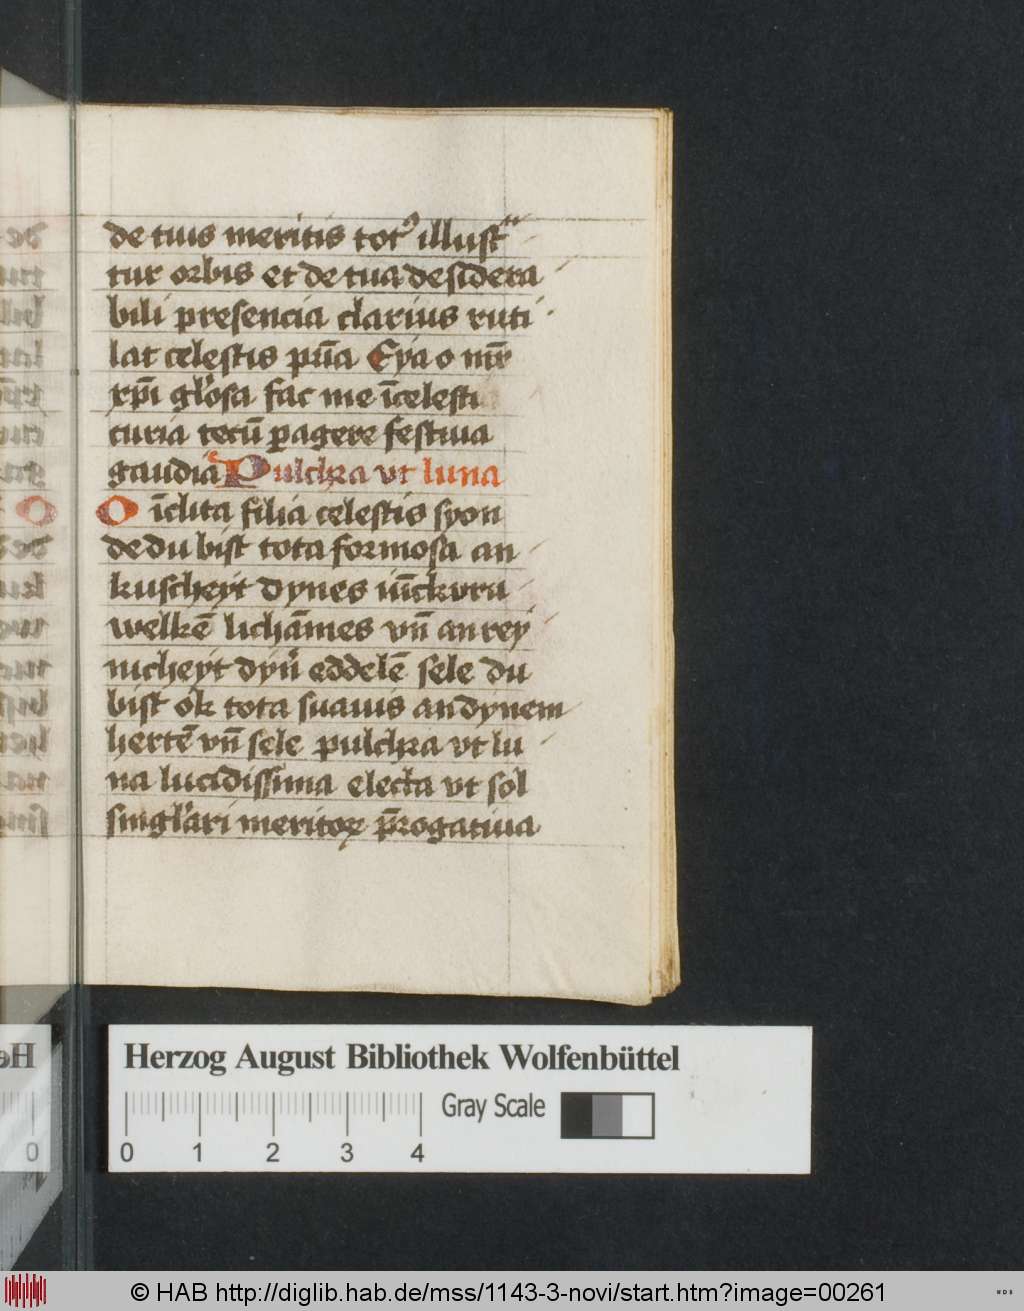 de tuis meritis tot᷒ illust
tur orbis et de tua desidera
bili presencia clarius ruti
lat celestis pūa Eya o mr̄
xp̄i gl'osa fac me ī celesti
curia tecū ꝑagere festiua
gaudia Pulchra vt luna
O īclita filia celestis syon
de du bist tota formosa an
kuscheyt dynes iūckvru
welkē lichāmes vn̄ an rey
nicheyt dyn̄ eddelē sele du
bist ok tota suauis an dynem
hertē vn̄ sele pulchra vt lu
na lucidissima electa vt sol
singl'ari meritoꝝ p̄rogatiua
Herzog August Bibliothek Wolfenbüttel
Gray Scale
0 1 2 3 4
© HAB http://diglib.hab.de/mss/1143-3-novi/start.htm?image=00261